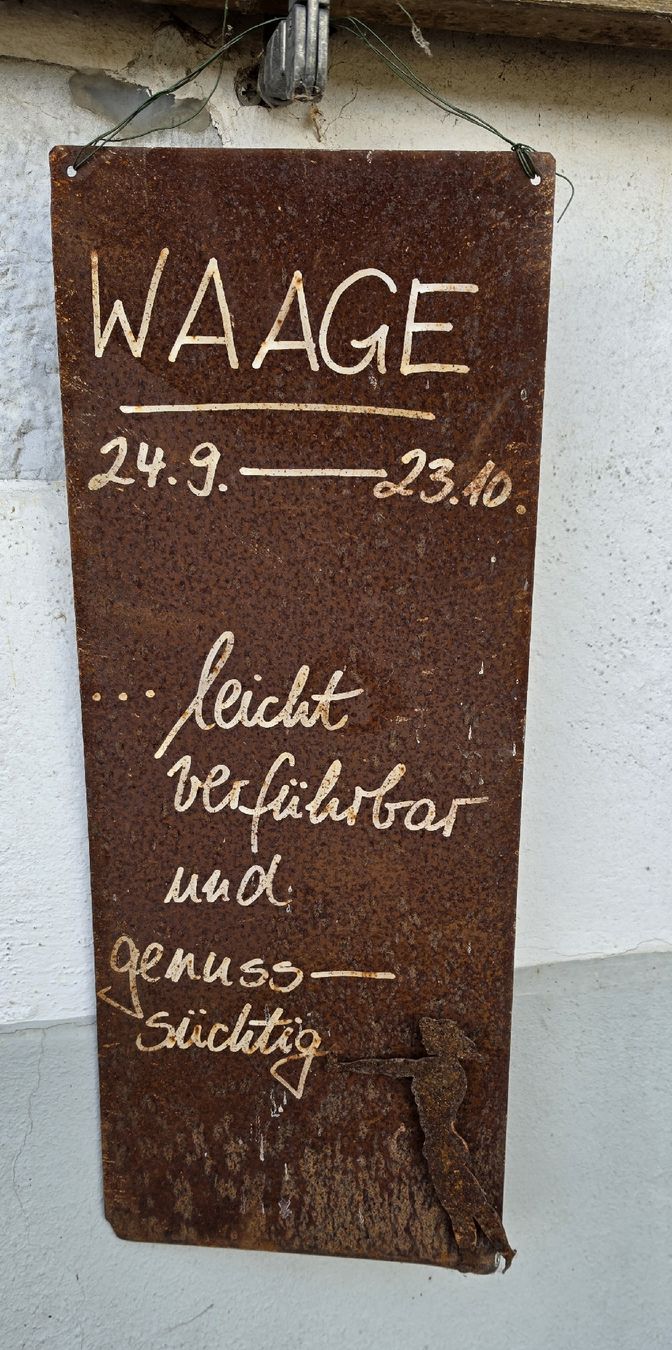 WAAGE
24.9. — 23.10.
... leicht
verführbar
und
genuss—
süchtig